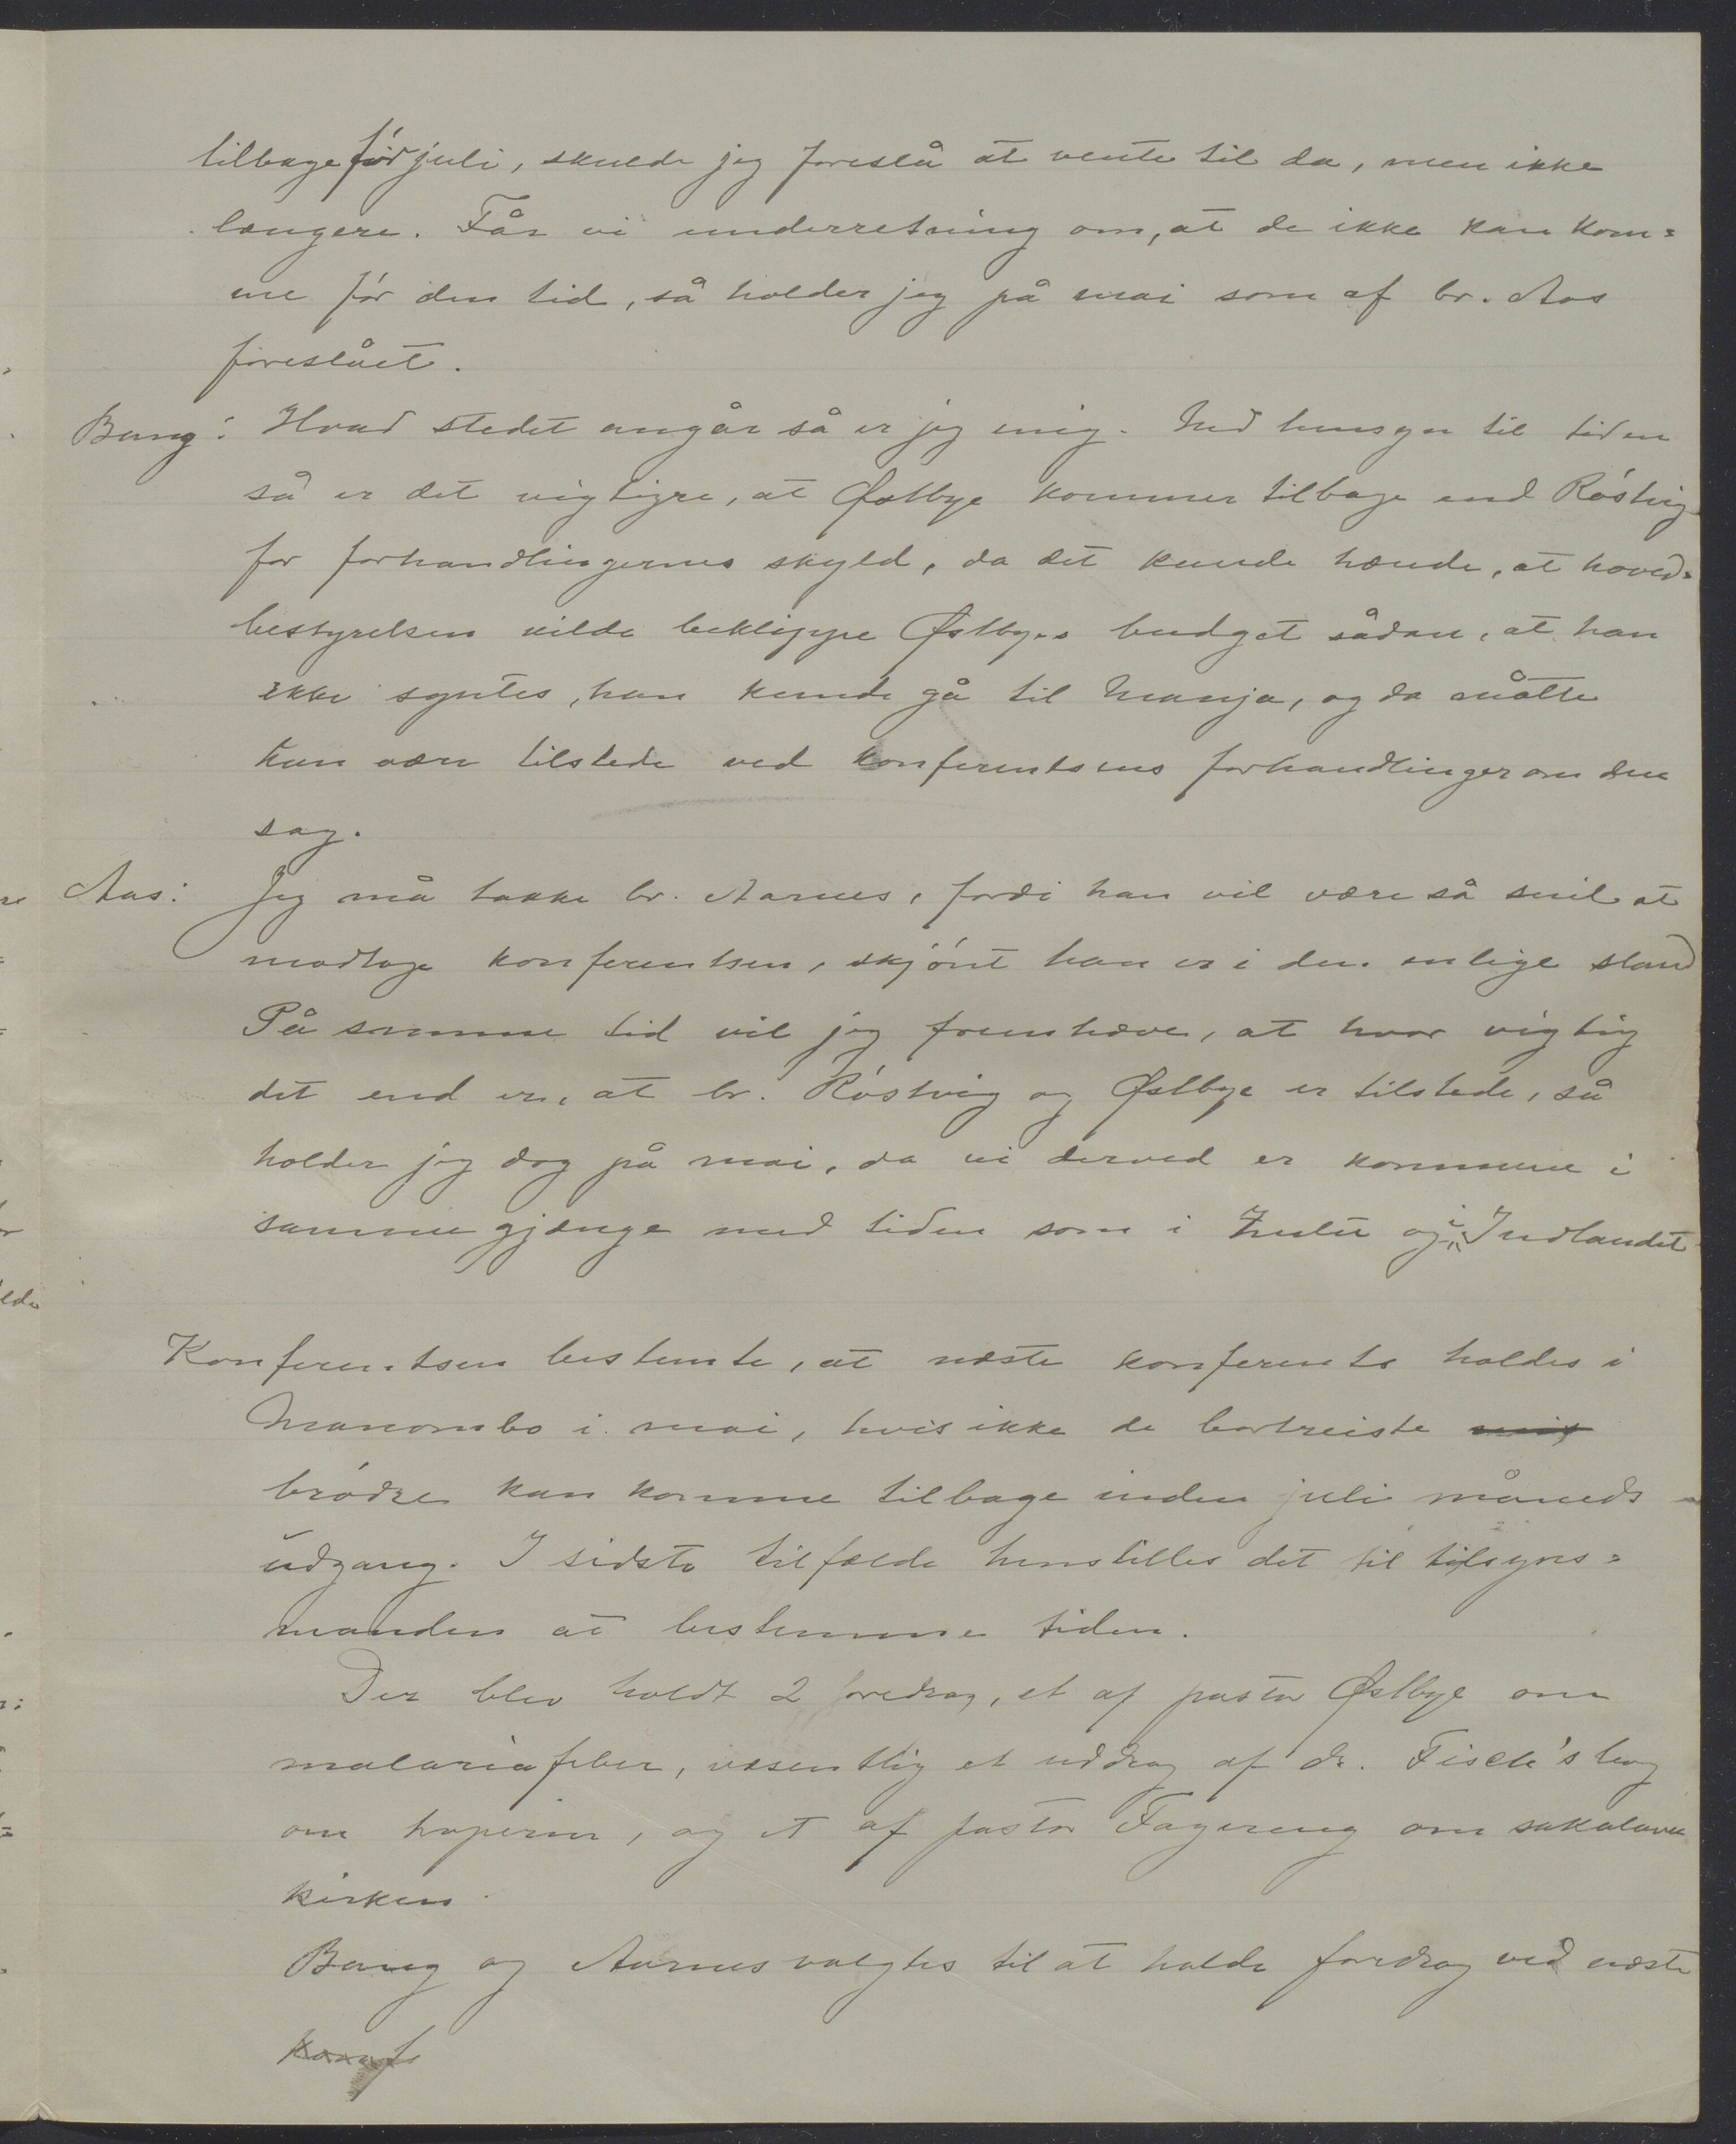 tilbage før juli, skulde jeg foreslå at vente til da, men ikke
længere. Får vi underretning om, at de ikke kan kom=
me før den tid, så holder jeg på mai som af br. Aas
foreslået.
Bang: Hvad stedet angår så er jeg enig. Med hensyn til tiden
så er det vigtigre, at Østbye kommer tilbage end Röstvig
for forhandlingernes skyld, da det kunde hænde, at hoved=
bestyrelsen vilde beklippe Østbyes budget sådan, at han
ikke syntes, han kunde gå til Manja, og da måtte
han være tilstede ved konferentsens forhandlinger om den
sag.
Aas: Jeg må takke br. Aarnes, fordi han vil være så snil at
modtage konferentsen, skjönt han er i den enlige stand
På samme tid vil jeg fremhæve, at hvor vigtig
det end er, at br. Röstvig og Østbye er tilstede, så
holder jeg dog på mai, da vi derved er kommen i
samme gjænge med tiden som i Zulu og i Indlandet
Konferentsen bestemte, at næste konferents holdes i
Manombo i mai, hvis ikke de bortreiste
brödre kan komme tilbage inden juli måneds
udgang. I sidste tilfælde henstilles det til tilsyns=
manden at bestemme tiden.
Der blev holdt 2 foredrag, et af pastor Østbye om
malariafeber, væsentlig et uddrag af dr. Fisch's bog
om tropierne, og et af pastor Fagereng om sakalava
kirken.
Bang og Aarnes valgtes til at holde fordrag ved næste